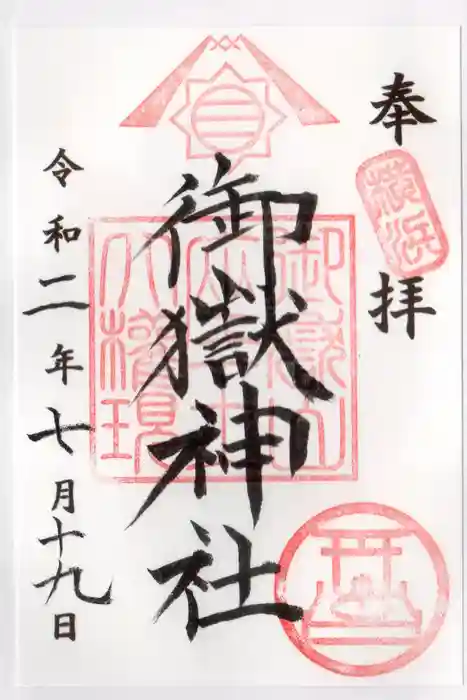 奉拝
横浜
御嶽神社
令和二年七月十九日